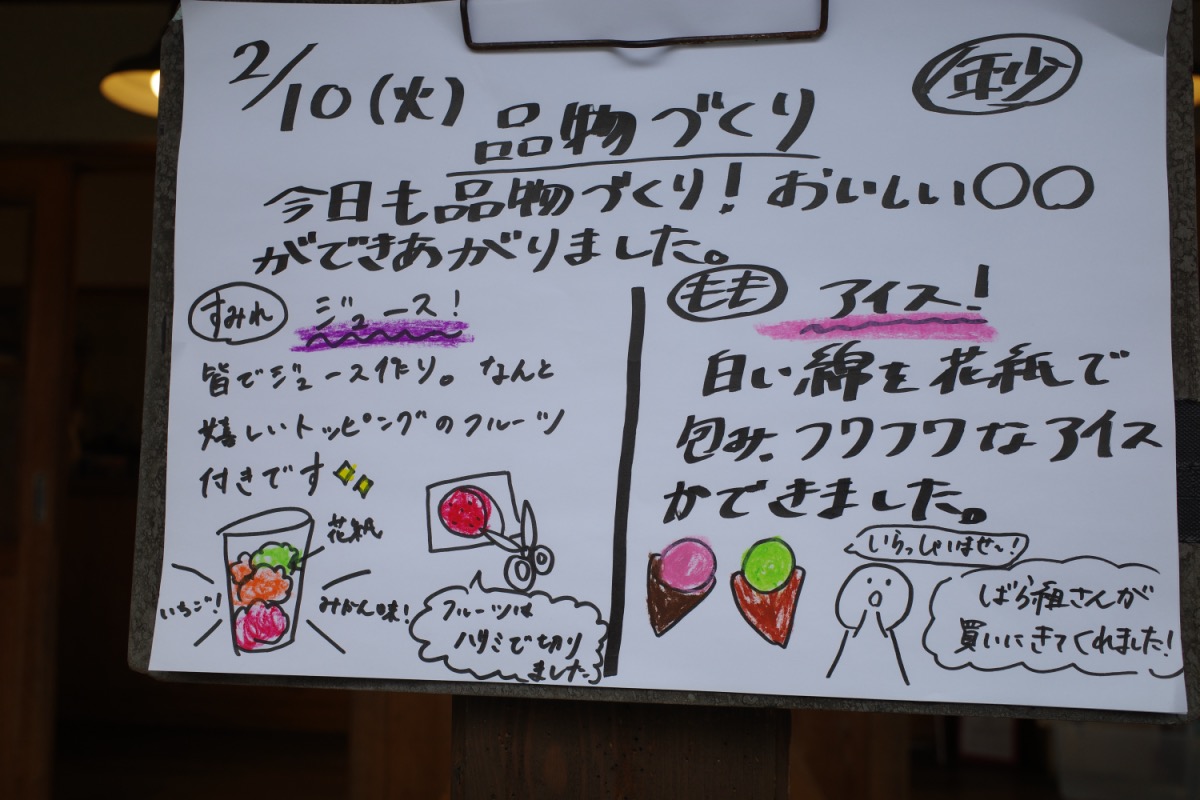 2/10(火)
年少
品物づくり
今日も品物づくり!おいしい〇〇
ができあがりました。
すみれ
ジュース!
皆でジュース作り。なんと
嬉しいトッピングのフルーツ
付きです
花紙
いちご!
みかん味!
フルーツは
ハサミで切り
ました。
もも
アイス!
白い綿を花紙で
包み、フワフワなアイス
ができました。
いらっしゃいませ〜!
ばら組さんが
買いにきてくれました!